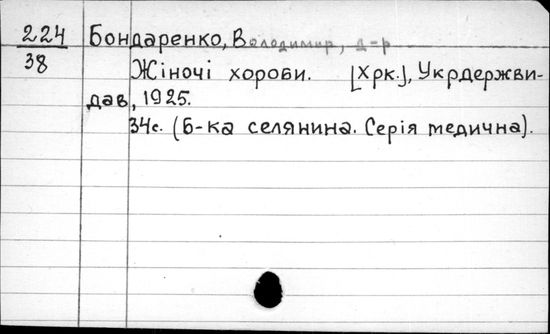 224 Бондаренко, Володимир, д-р
38 Жіночі хороби. [Хрк.], Укрдержви-
дав, 1925.
34с. (Б-ка селянина. Серія медична).